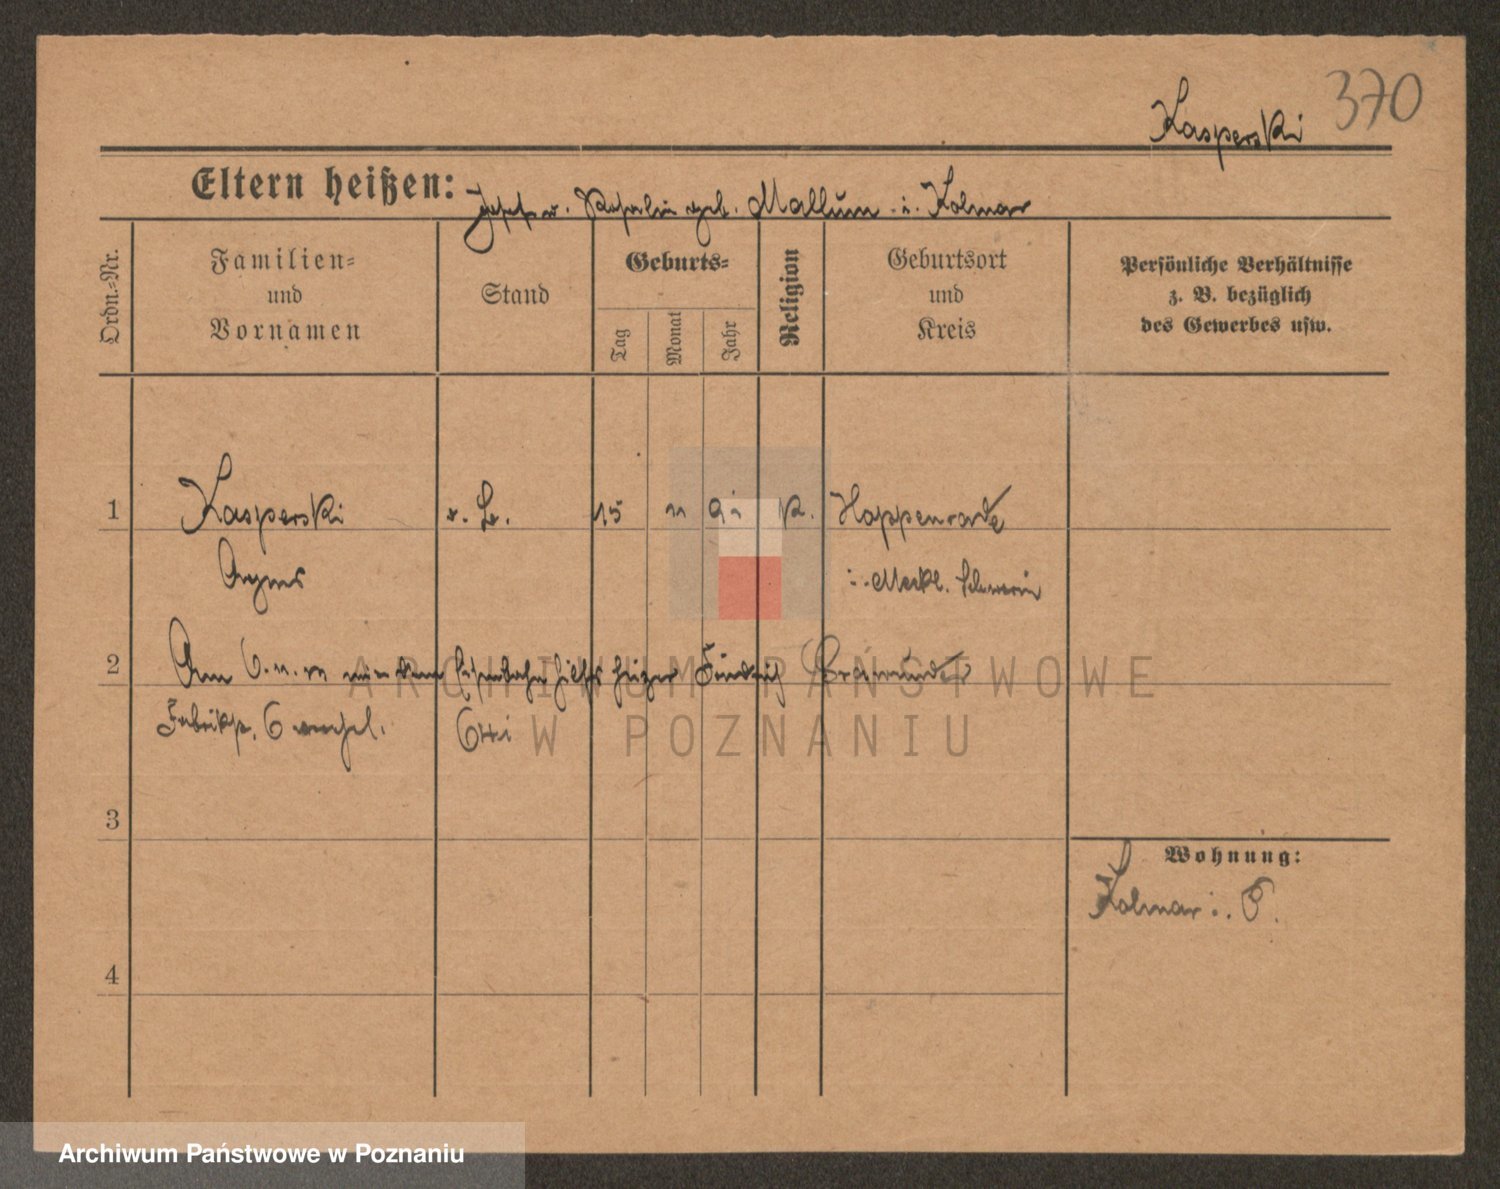 370
Kasperski
Eltern heißen: Josef u. Rosalie geb. Mallum i. Kolmar
Ordn.-Nr.
Familien-
und
Vornamen
Stand
Geburts-
Tag
Monat
Jahr
Religion
Geburtsort
und
Kreis
Persönliche Verhältnisse
z. B. bezüglich
des Gewerbes usw.
1 Kasperski 15 11 91 K. Hoppenrade
Agnes i. Meckl. Schwerin
2 Am dem Eisenbahnhilfsheizer Friedrich
Fabrikstr. 6
3
4
Wohnung:
Kolmar i. P.
ARCHIWUM PAŃSTWOWE
W POZNANIU
Archiwum Państwowe w Poznaniu